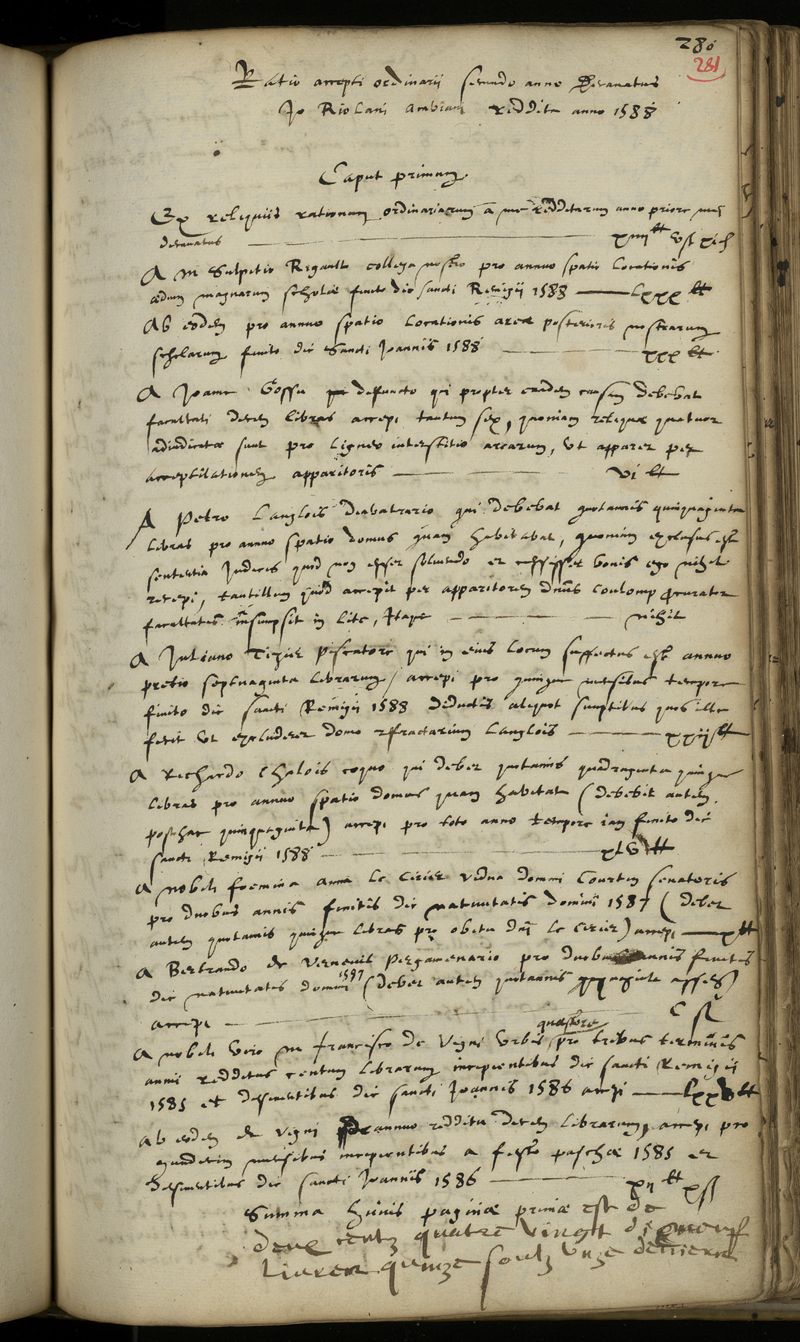 280
281
Ratio accepti ordinarii secundo anno Decanatus
Jo Riolani Ambiani reddita anno 1588
Caput primum
Ex reliquiis rationum ordinariarum a me redditarum anno priore mei
decanatus xiiii lt vs xi d
A M Sulpitio Rigault collega nostro pro annuo spatio locationis
ædium magnarum scholæ finito die sancti Remigii 1588 Lxxx lt
Ab eodem pro annuo spatio locationis areæ posterioris nostrarum
scholarum finito die Sancti Joannis 1588 xxx lt
A Joanne Gossu defuncto qui propter eandem causam debebat
facultati decem libras accepi tantum sex, quoniam reliquæ quatuor
adiudicatæ sunt pro ligneo interstitio arearum, ut apparet per
acceptilationem apparitoris vi lt
A Petro Langlois qui debebat quotannis quinquaginta
libras pro annuo spatio domus quam habitabat, quoniam exclusus est
sententia Judicis quod non esset solvendo et cessisset bonis ego nihil
recepi, tantillum quod accepit per apparitorem dnus Coulomp procurator
facultatis insumpsit in lite, Itaque nihil
A Juliano Tixier piscatore qui in eius locum suffectus est annuo
pretio septuaginta librarum, accepi pro quinque mensibus tempore
finito die sancti Remigii 1588 deductis aliquot sumptibus quos ille
fecit ut excluderet domo refractarium Langlois xxiii lt
A Richardo Chalois coquo qui debet quotannis quadraginta quinque
libras pro annuo spatio domus quam habitat (debebit autem
posthac quinquaginta) accepi pro toto anno tempore iam finito die
sancti Remigii 1588 xLv lt
A nobili foemina Anna le Cirier vidua domini Courtin senatoris
pro duobus annis finitis die nativitatis domini 1587 (debet
autem quotannis quinque libras pro obitu dni le Cirier) accepi x lt
A Bertrando de Verneuil pergamenario pro duobus annis finitis
die nativitatis domini 1587 (debet autem quotannis quinquaginta asses)
accepi C s
A nobili viro M Francisco de Vigni urbis quæstore pro tribus terminis
annui redditus centum librarum incipientibus die sancti Remigii
1585 et desinentibus die sancti Joannis 1586 accepi Lxxv lt
Ab eodem de Vigni de annuo redditu decem librarum, accepi pro
quindecim mensibus incipientibus a festo paschæ 1585 et
desinentibus die sancti Joannis 1586 xii lt x s
Summa huius paginæ primæ est de
deux centz quatre vingt dixneuf
livres quinze soulz unze deniers